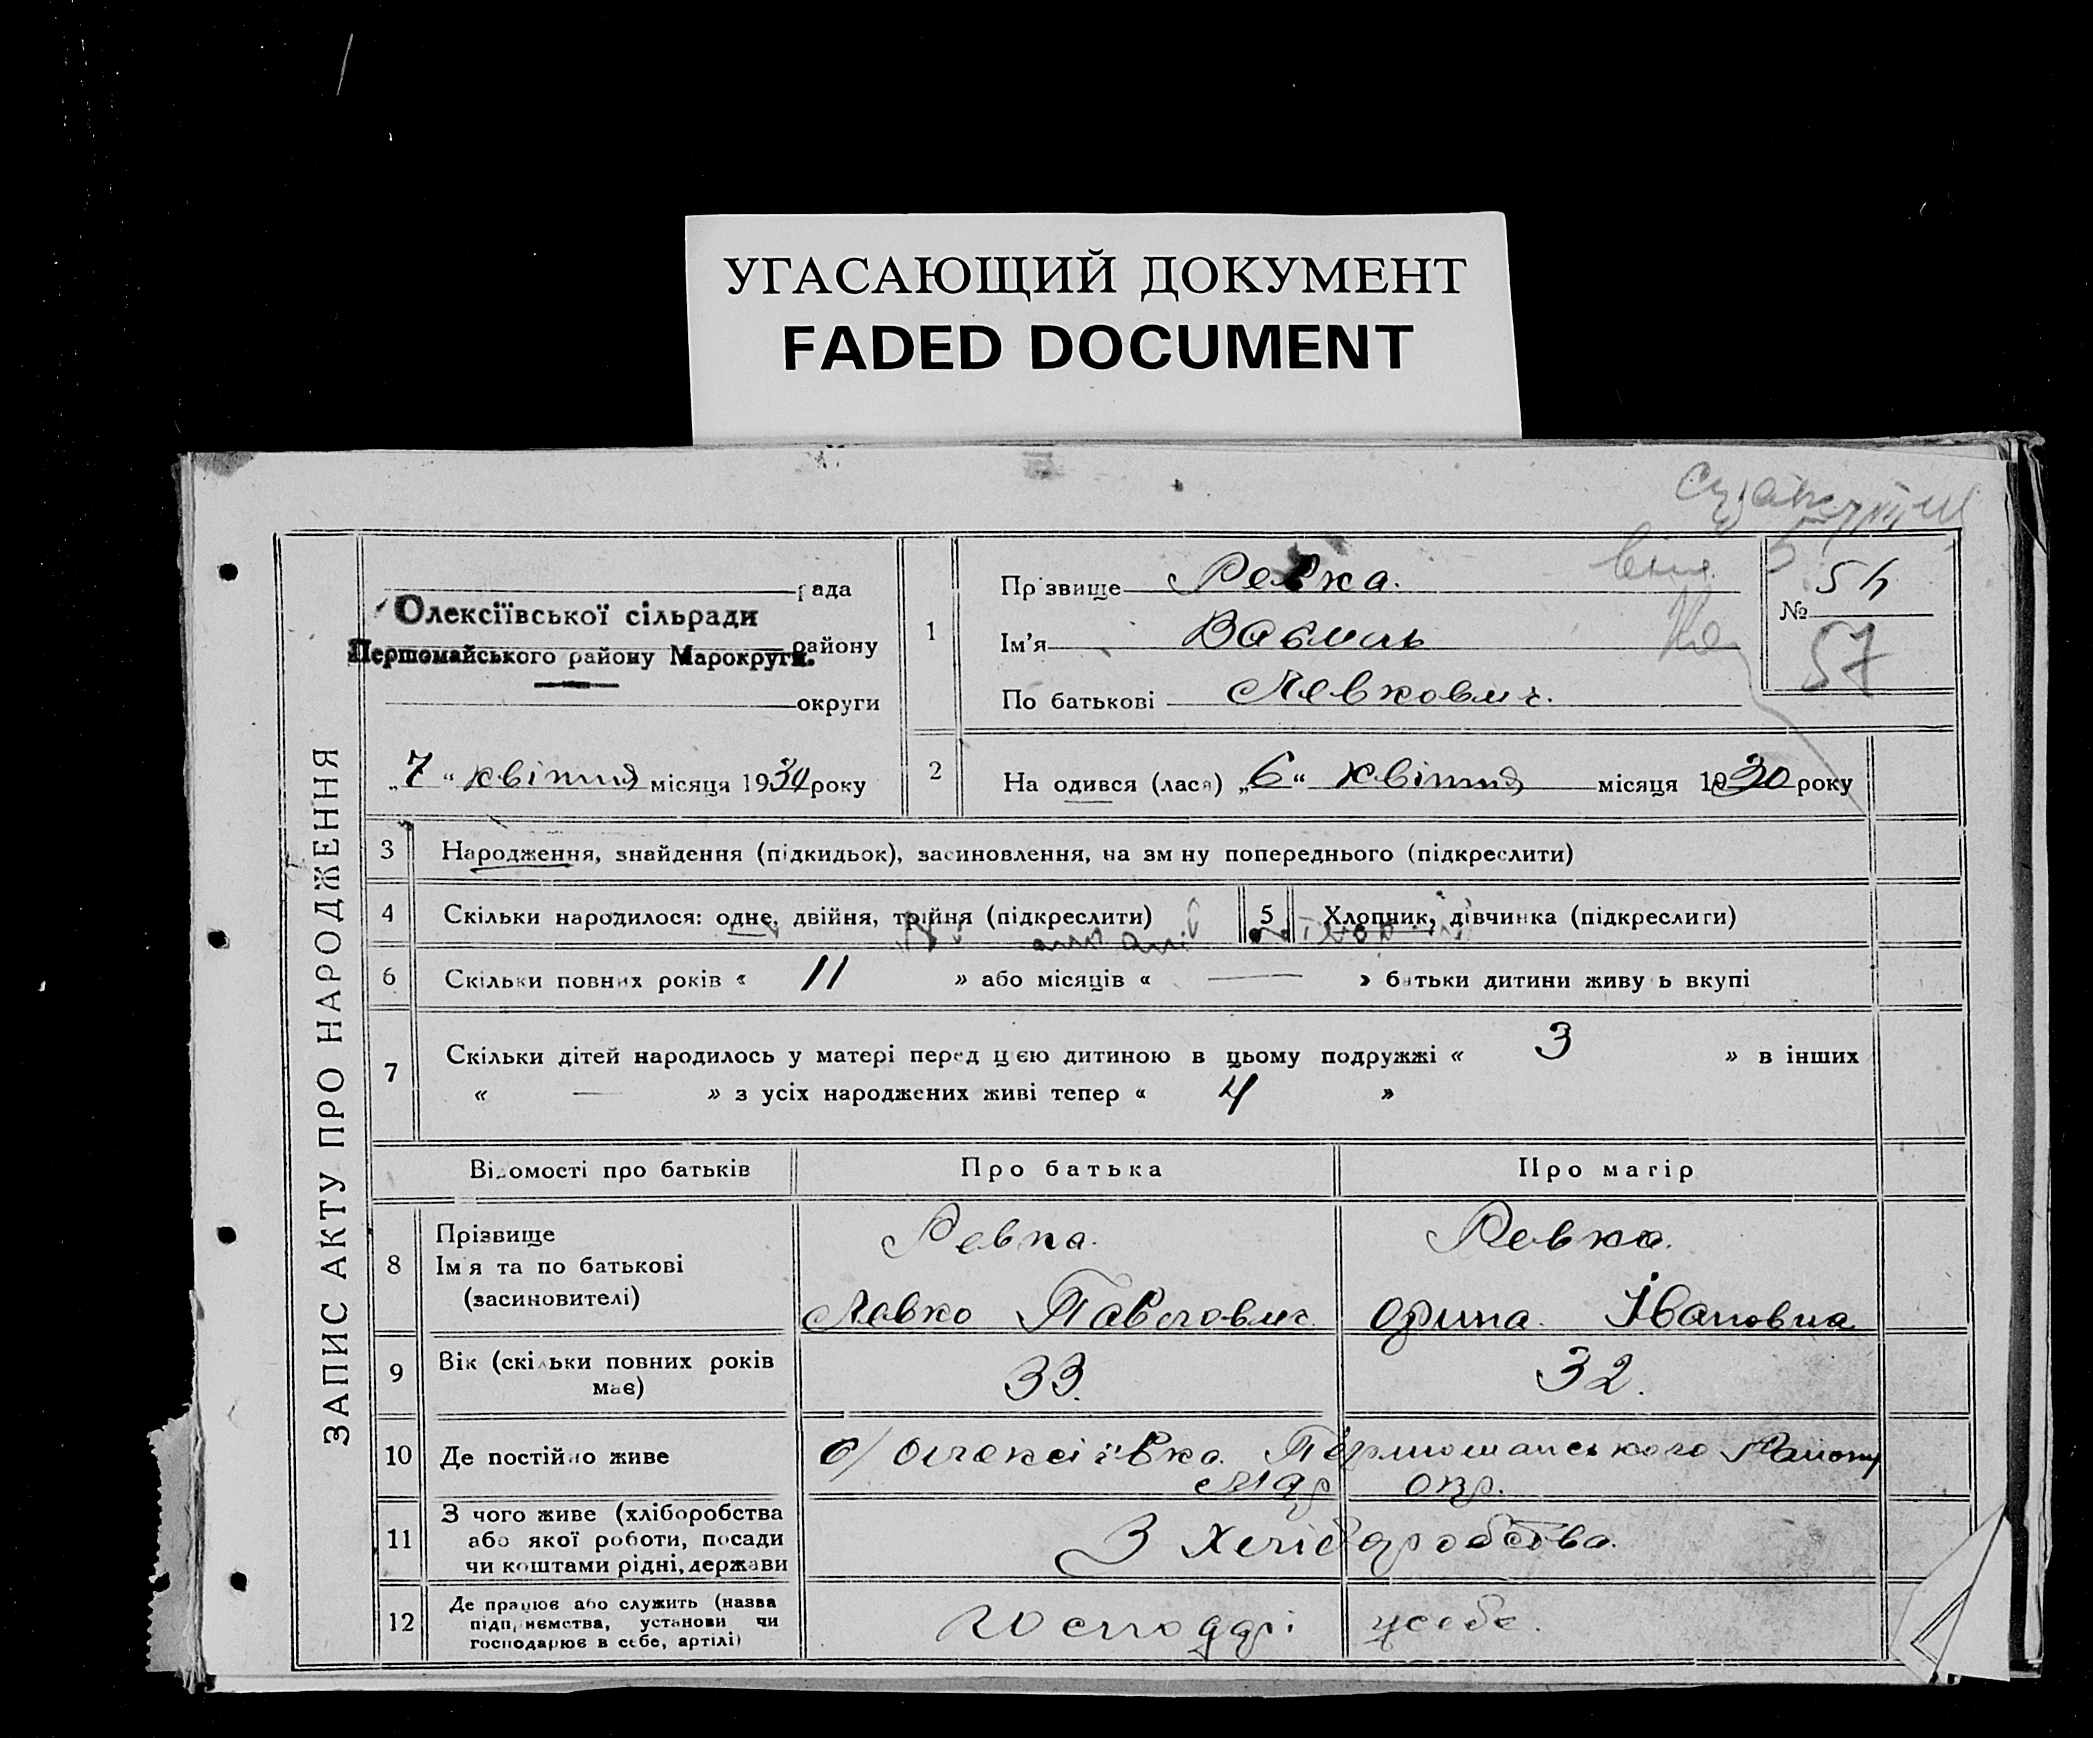 УГАСАЮЩИЙ ДОКУМЕНТ
FADED DOCUMENT
ЗАПИС АКТУ ПРО НАРОДЖЕННЯ
рада
Олексіївської сільради
району
Першомайського району Марокруги.
округи
„7“ квітня місяця 1930 року
1
Прізвище Ревка.
Ім’я Василь
По батькові Левкович.
№ 54
57
2
На одився (лася) „6“ квітня місяця 1930 року
3 Народження, знайдення (підкидьок), засиновлення, на зм ну попереднього (підкреслити)
4 Скільки народилося: одне, двійня, трійня (підкреслити)
5 Хлопчик, дівчинка (підкреслити)
6 Скільки повних років « 11 » або місяців « — » батьки дитини живу ь вкупі
7 Скільки дітей народилось у матері перед цією дитиною в цьому подружжі « 3 » в інших
« — » з усіх народжених живі тепер « 4 »
Відомості про батьків Про батька Про матір
8 Прізвище
Ім'я та по батькові
(засиновителі)
Ревка.
Левко Павлович
Ревка.
Орина Івановна
9 Вік (скільки повних років
має)
33.
32.
10 Де постійно живе
с/ Олексіївка Першомайського Району
Мар окр.
11 З чого живе (хліборобства
або якої роботи, посади
чи коштами рідні, держави
З хліборобства.
12 Де працює або служить (назва
підприємства, установи чи
господарює в себе, артілі)
у себе.